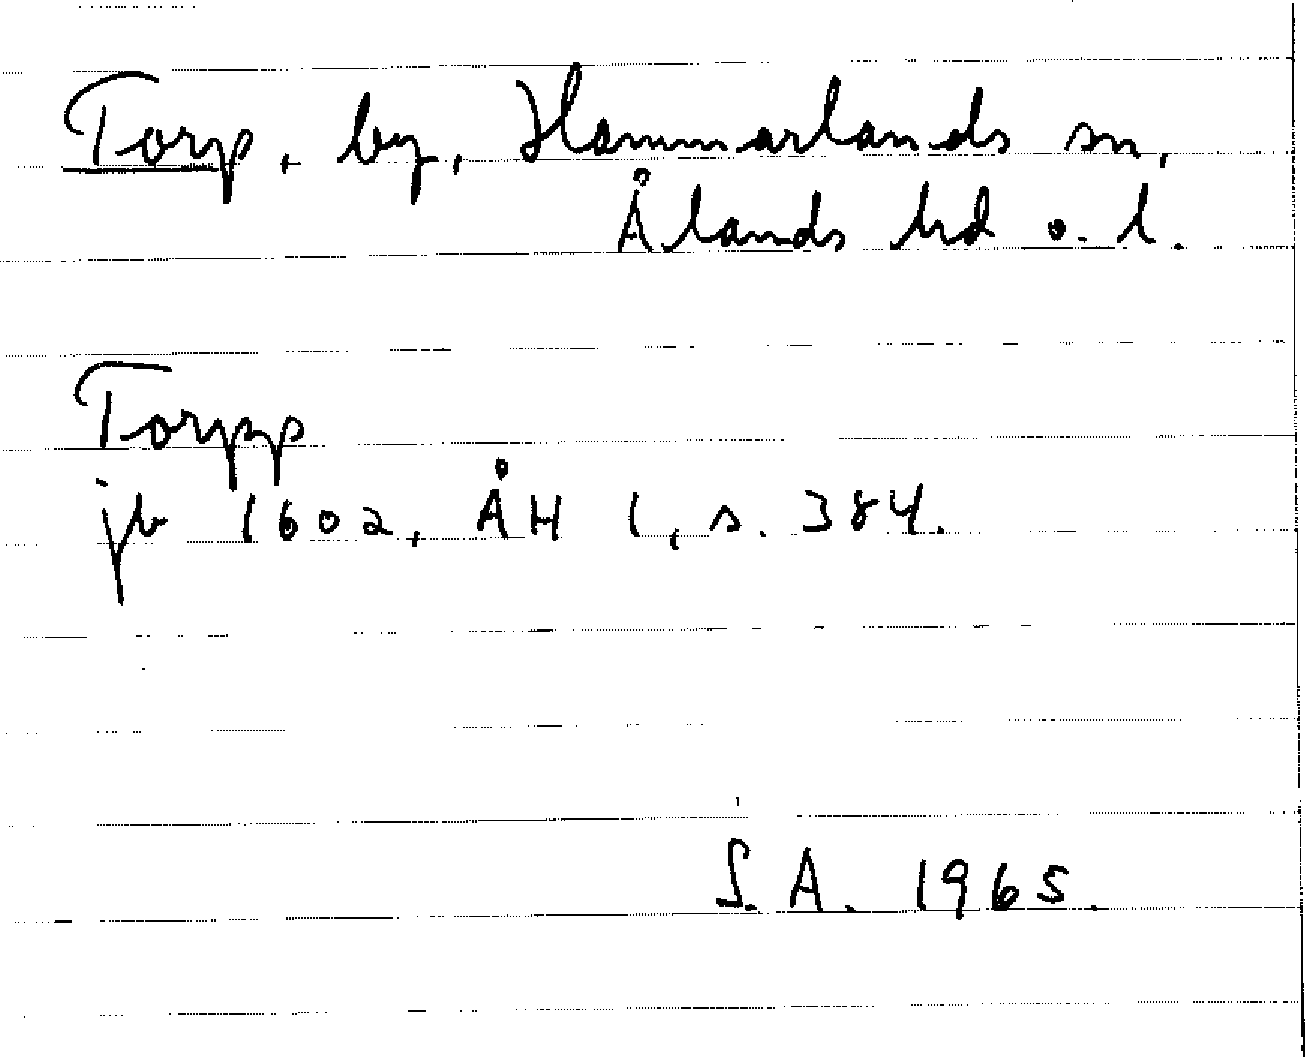 Torp, by, Hammarlands sn,
Ålands hd o. l.
Torpp
jb 1602, ÅH 1, s. 384.
S. A. 1965.